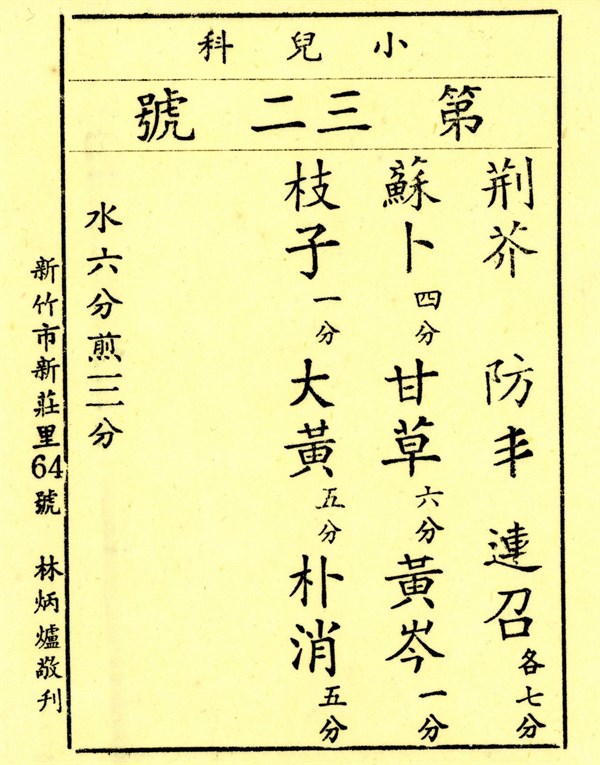 小兒科
第三二號
荆芥 防丰 連召各七分
蘇卜四分 甘草六分 黃岑一分
枝子一分 大黃五分 朴消五分
水六分煎三分
新竹市新莊里64號 林炳爐敬刋